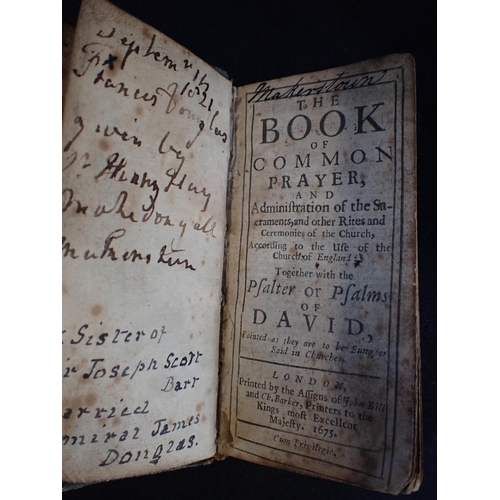 Septem
Francis Douglas
given by
Sr Henry Hay
Makdougall
Sister of
Sir Joseph Scott
Bart
Married
Admiral James
Douglas.
Makerstoun
THE
BOOK
OF
COMMON
PRAYER,
AND
Administration of the Sa-
craments, and other Rites and
Ceremonies of the Church,
According to the Use of the
Church of England:
Together with the
Psalter or Psalms
OF
DAVID,
Pointed as they are to be Sung or
Said in Churches.
LONDON,
Printed by the Assigns of John Bill
and Ch. Barker, Printers to the
Kings most Excellent
Majesty. 1675.
Cum Privilegio.